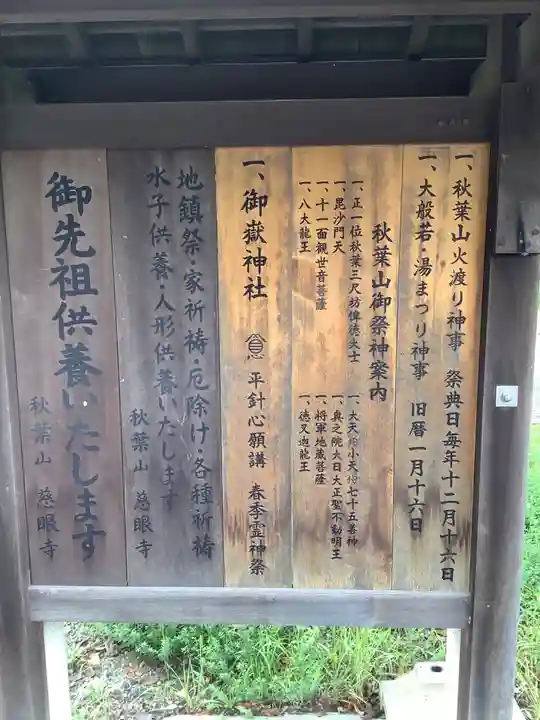 一、秋葉山火渡り神事 祭典日毎年十二月十六日
一、大般若・湯まつり神事 旧暦一月十六日
秋葉山御祭神案内
一、正一位秋葉三尺坊俾徳大士
一、毘沙門天
一、十一面観世音菩薩
一、八大龍王
一、大天狗小天狗七十五善神
一、奥之院大日大正聖不動明王
一、将軍地蔵菩薩
一、徳叉迦龍王
一、御嶽神社 平針心願講 春季霊神祭
地鎮祭・家祈祷・厄除け・各種祈祷
水子供養・人形供養いたします
秋葉山 慈眼寺
御先祖供養いたします
秋葉山 慈眼寺